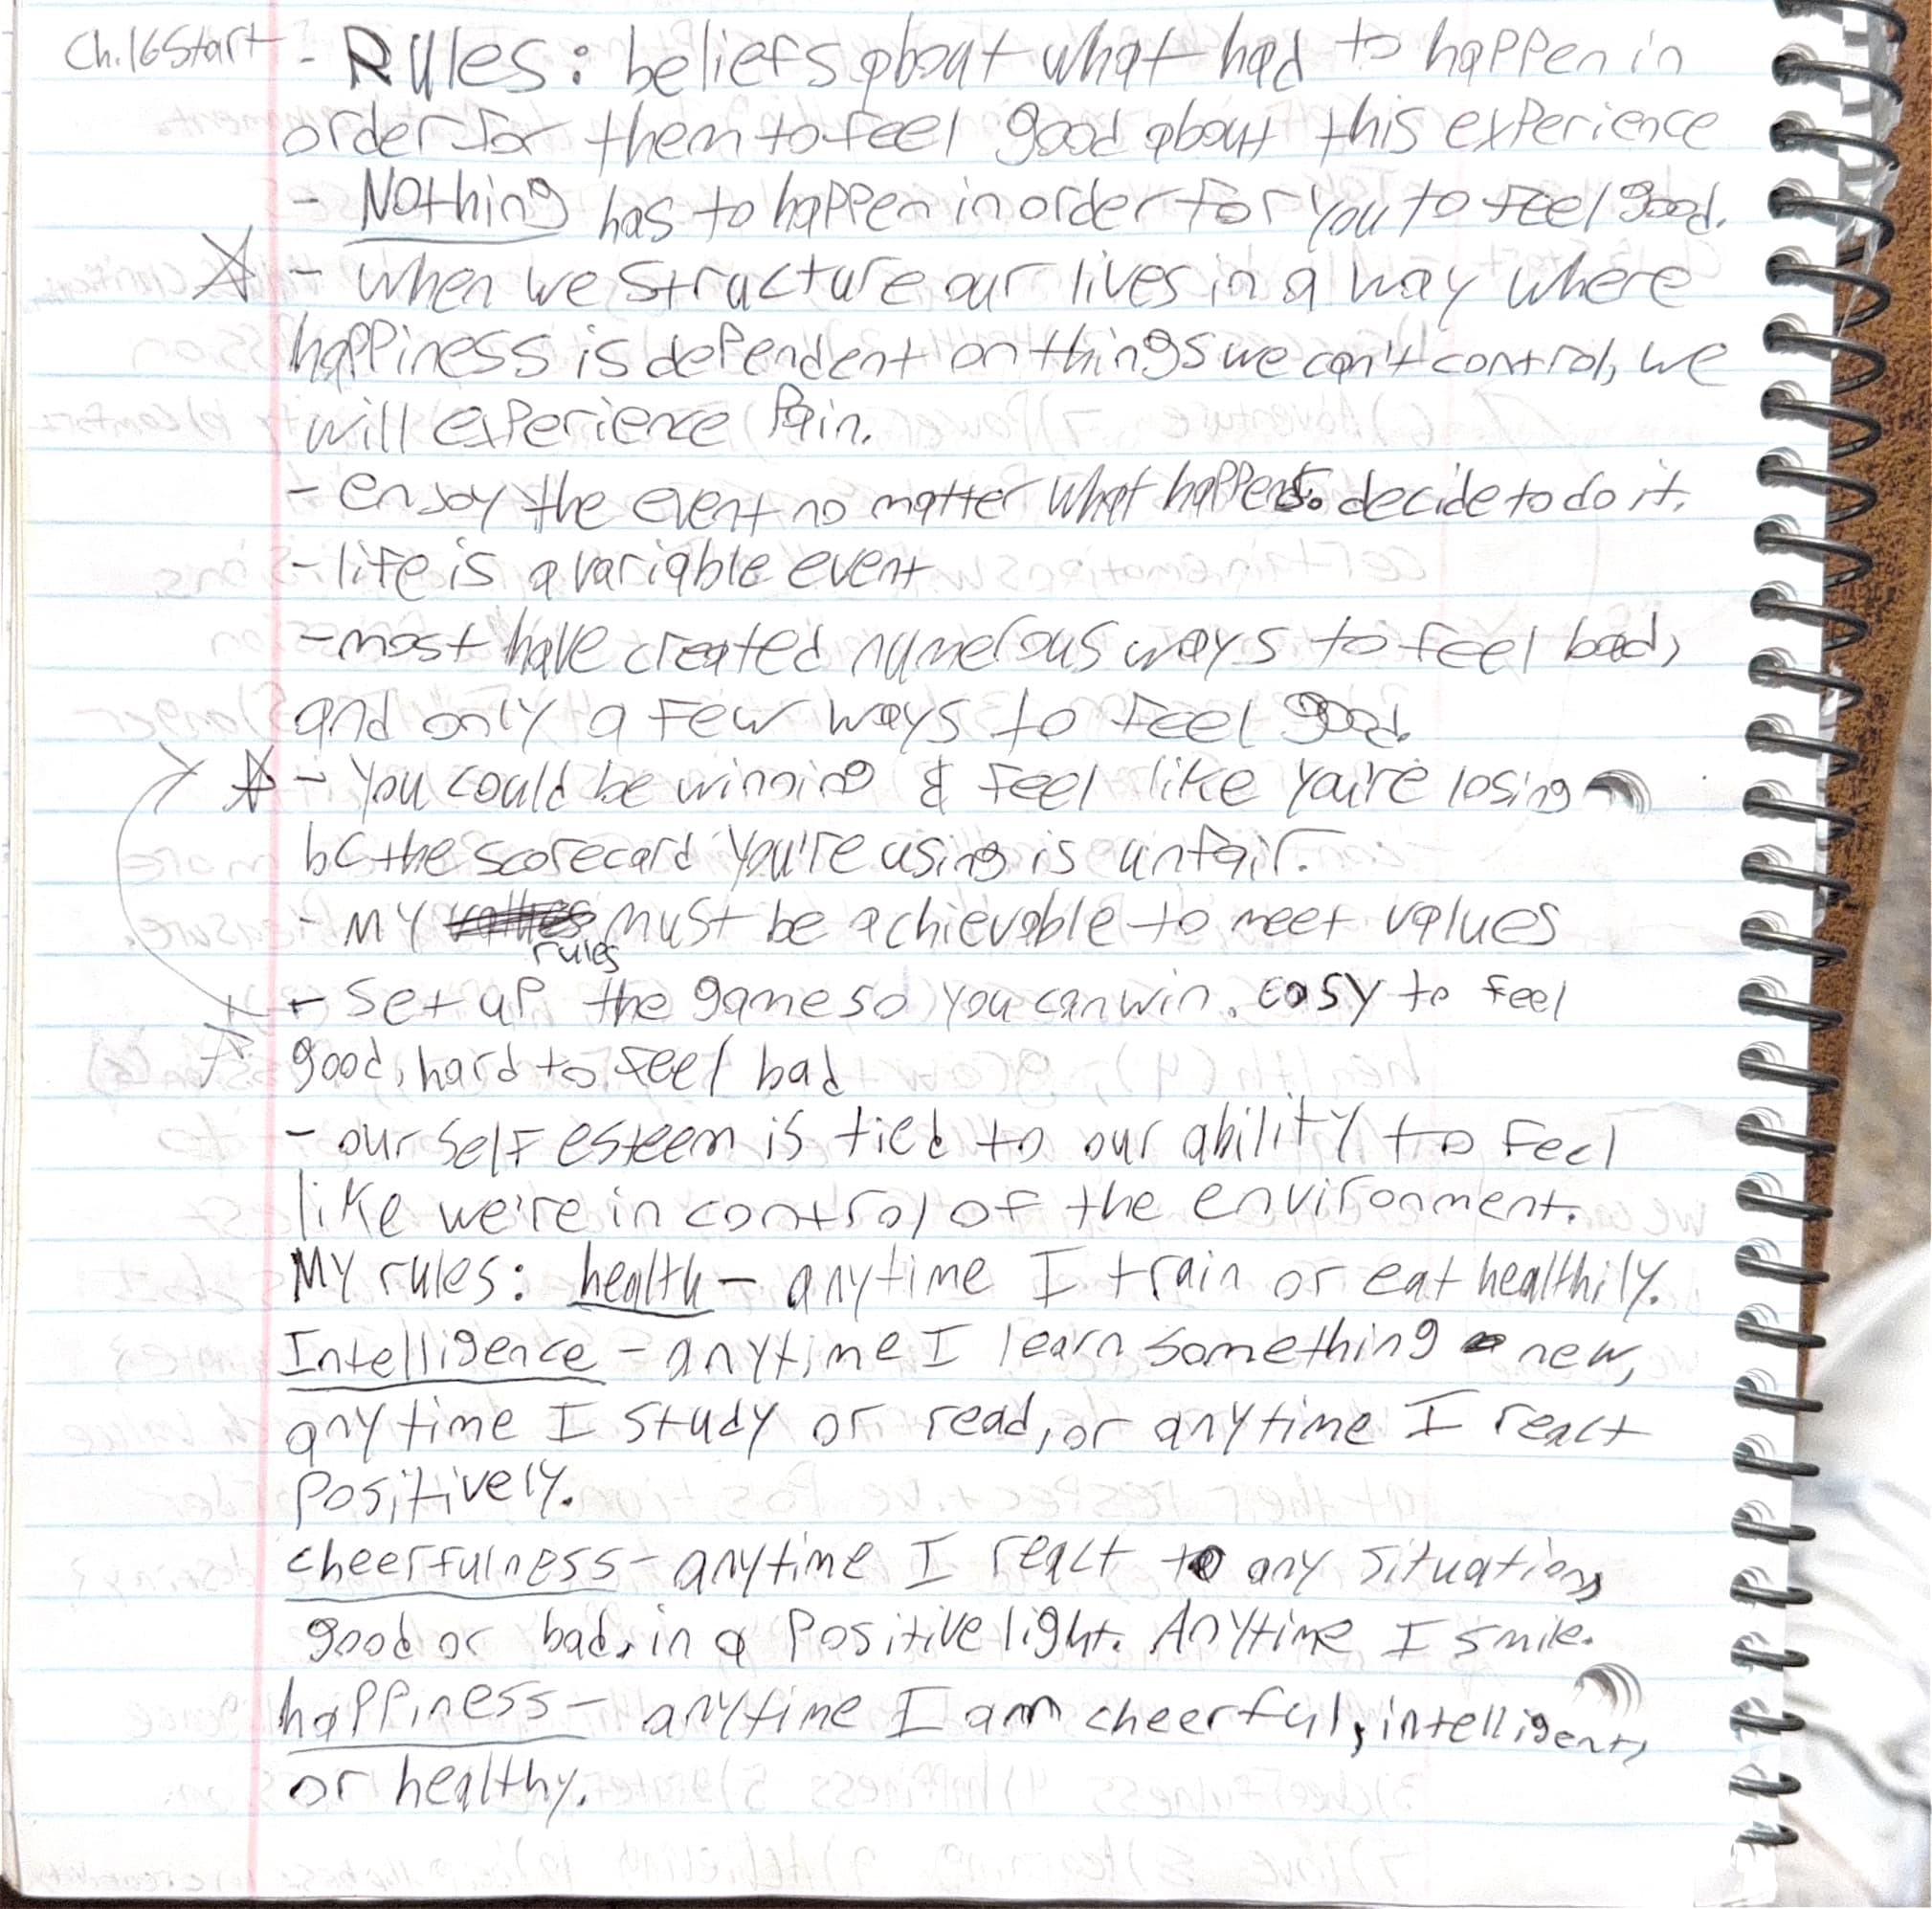 Ch.16 Start - Rules: beliefs about what had to happen in
order for them to feel good about this experience
- Nothing has to happen in order for you to feel good.
☆ - when we structure our lives in a way where
happiness is dependent on things we can't control, we
will experience Pain.
- enjoy the event no matter what happens. decide to do it.
- life is a variable event
- most have created numerous ways to feel bad,
and only a few ways to feel good.
☆ - You could be winning & feel like you're losing
bc the scorecard you're using is unfair.
- MY rules must be achievable to meet values
- Set up the game so you can win. easy to feel
good, hard to feel bad
- our self esteem is tied to our ability to feel
like we're in control of the environment.
MY rules: health - anytime I train or eat healthily.
Intelligence - anytime I learn something new,
anytime I study or read, or anytime I react
Positively.
cheerfulness - anytime I react to any situation,
good or bad, in a Positive light. Anytime I smile.
happiness - anytime I am cheerful, intelligent,
or healthy.